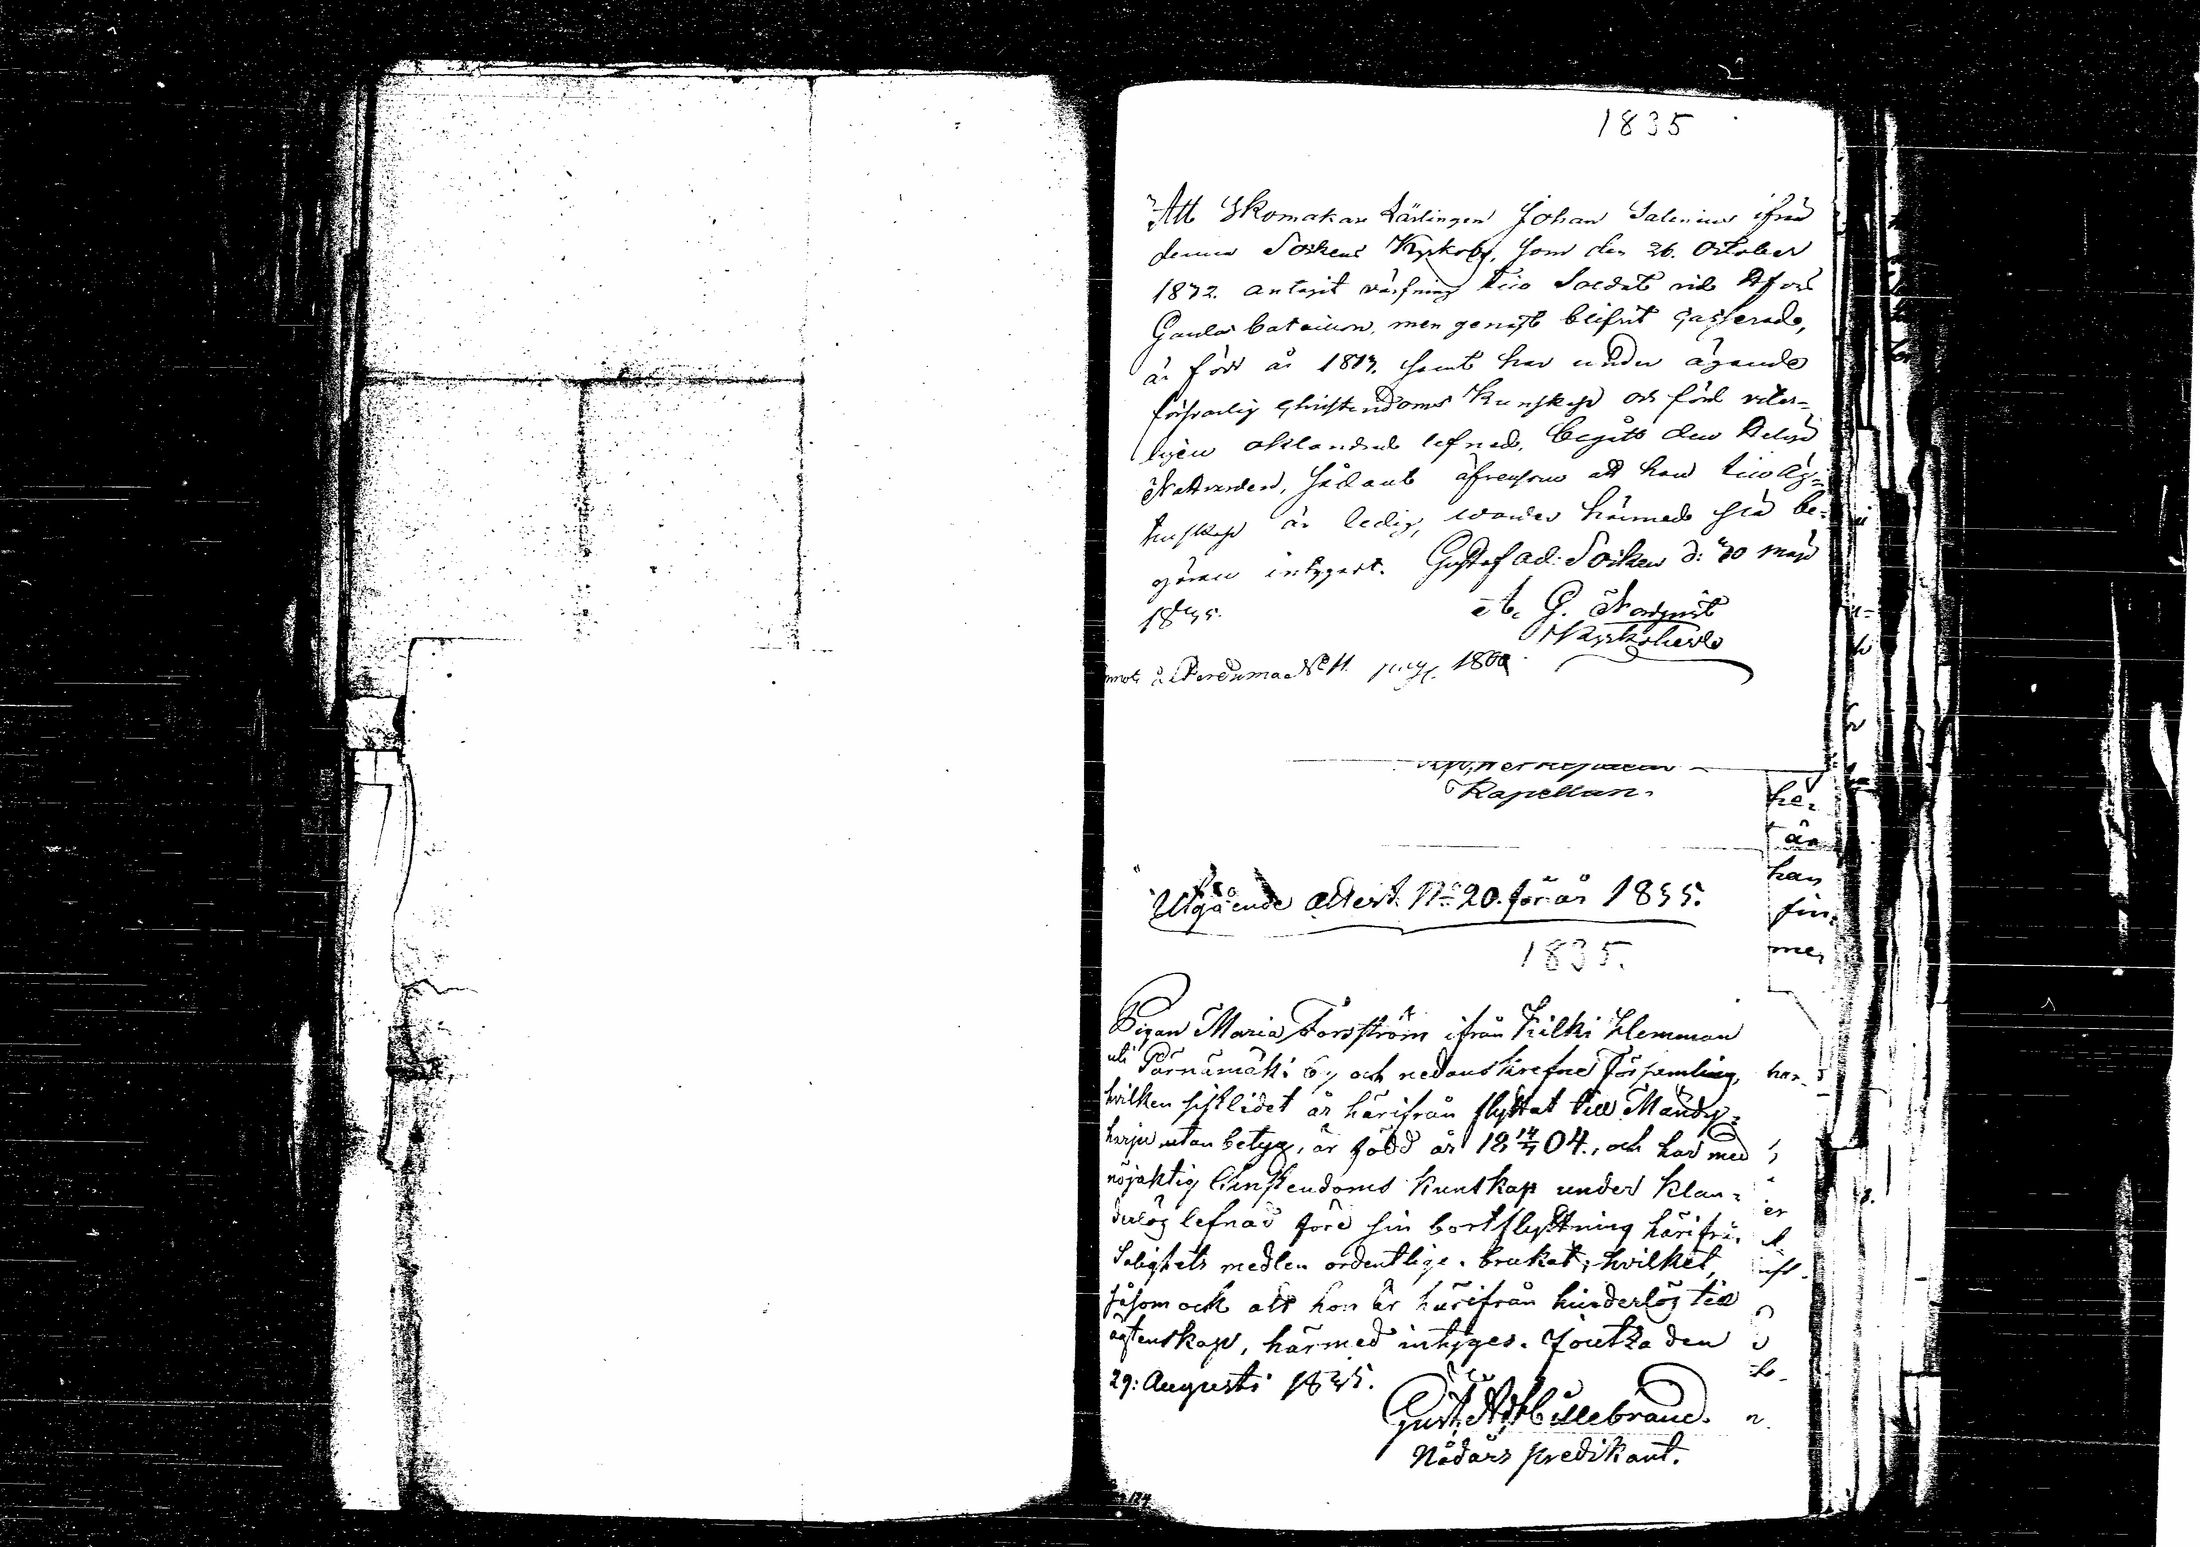 1835
Att Skomakare Lärlingen Johan Salenius ifrån
denna Sockens Kyrkoby, som den 26. October
1832. antagit värfning till Soldat vid
Bataillon, men genast blifvit Casserad,
är född år 1813. samt har under ägande
försvarlig Christendoms Kunskap och förd
oklandrad lefnad, begått den Helga
Nattvarden, sådant äfvensom att han till Äg=
tenskap är ledig, warder härmed på be=
gäran intygat. Gustaf Ad: Socken d: 20 Maji
1835.
G. Nordqvist
Kyrkoherde
Kapellan.
hé=
är
han
fin=
me,
Utgående attest No 20. för år 1835.
1835.
Pigan Maria Forsström ifrån Kilki Hemman
uti Pärnämäki by och nedanskrefne Församling,
hvilken sistlidet år härifrån flyttat till Mändy=
harju utan betyg, är född år 18 14/7 04., och har med
nöjaktig Christendoms Kunskap under klan=
derlög lefnad före sin bortflyttning härifrån
Salighets medlen ordentlige. brukat; hvilket,
såsom ock att hon är härifrån hinderlös till
ägtenskap, härmed intyges. Joutza den
29: Augusti 1835.
Gust. Ad. Hillebrand.
Nådårs predikant.